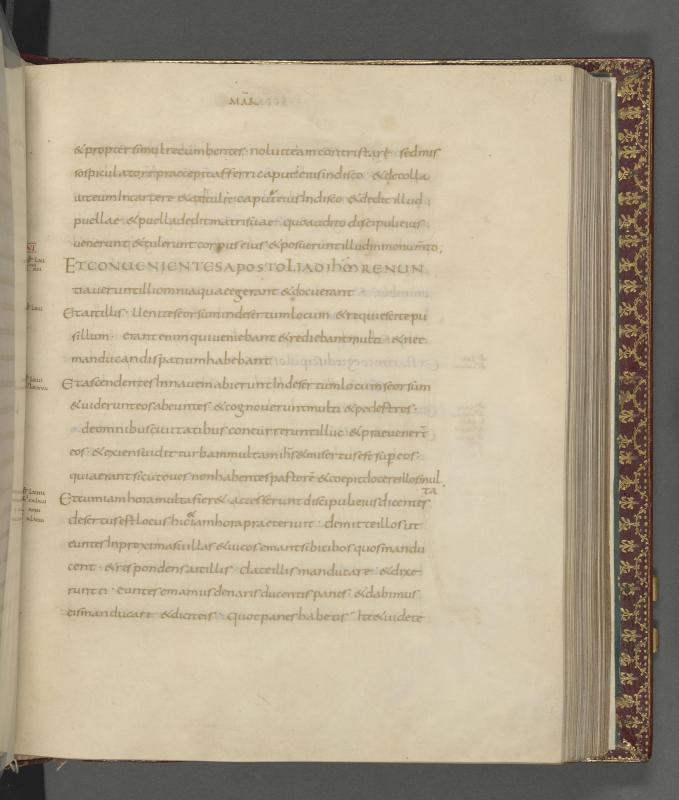 MAR
& propter simul recumbentes · noluit eam contristare · sed mis
so spiculatore praecepit afferri caput eius in disco · & decolla
uit eum in carcere & attulit caput eius in disco & dedit illud
puellae · & puella dedit matri suae · quo audito discipuli eius
uenerunt & tulerunt corpus eius & posuerunt illud in monumto,
ET CONUENIENTES APOSTOLI AD ihm RENUN
tiauerunt illi omnia quae egerant & docuerant
Et ait illis · Uenite seorsum in desertum locum & requiescite pu
sillum · erant enim qui ueniebant & rediebant multi · & nec
manducandi spatium habebant
Et ascendentes In nauem abierunt In desertum locum seorsum
& uiderunt eos abeuntes · & cognouerunt multi · & pedestres ·
de omnibus ciuitatibus concurrerunt illuc · & praeuenert
eos · & exiens uidit turbam multam ihs & misertus est sup eos ·
quia erant sicut oues non habentes pastore & coepit docere illos mul
ta ·
Et cum iam hora multa fier& · accesserunt discipuli eius dicentes
desertus est locus hic & iam hora praeteriuit · demitte illos ut
euntes In proximas uillas & uicos emant sibi cibos quos mandu
cent · & respondens ait illis · date illis manducare · & dixe
runt ei · euntes emamus denaris ducentis panes · & dabimus
eis manducare · & dicit eis · quot panes habetis · Ite & uidete